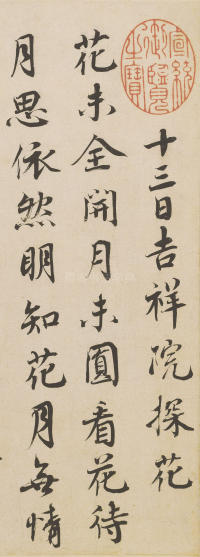 十三日吉祥院探花
花未全開月未圓看花待
月思依然明知花月無情
宣統御覽之寶